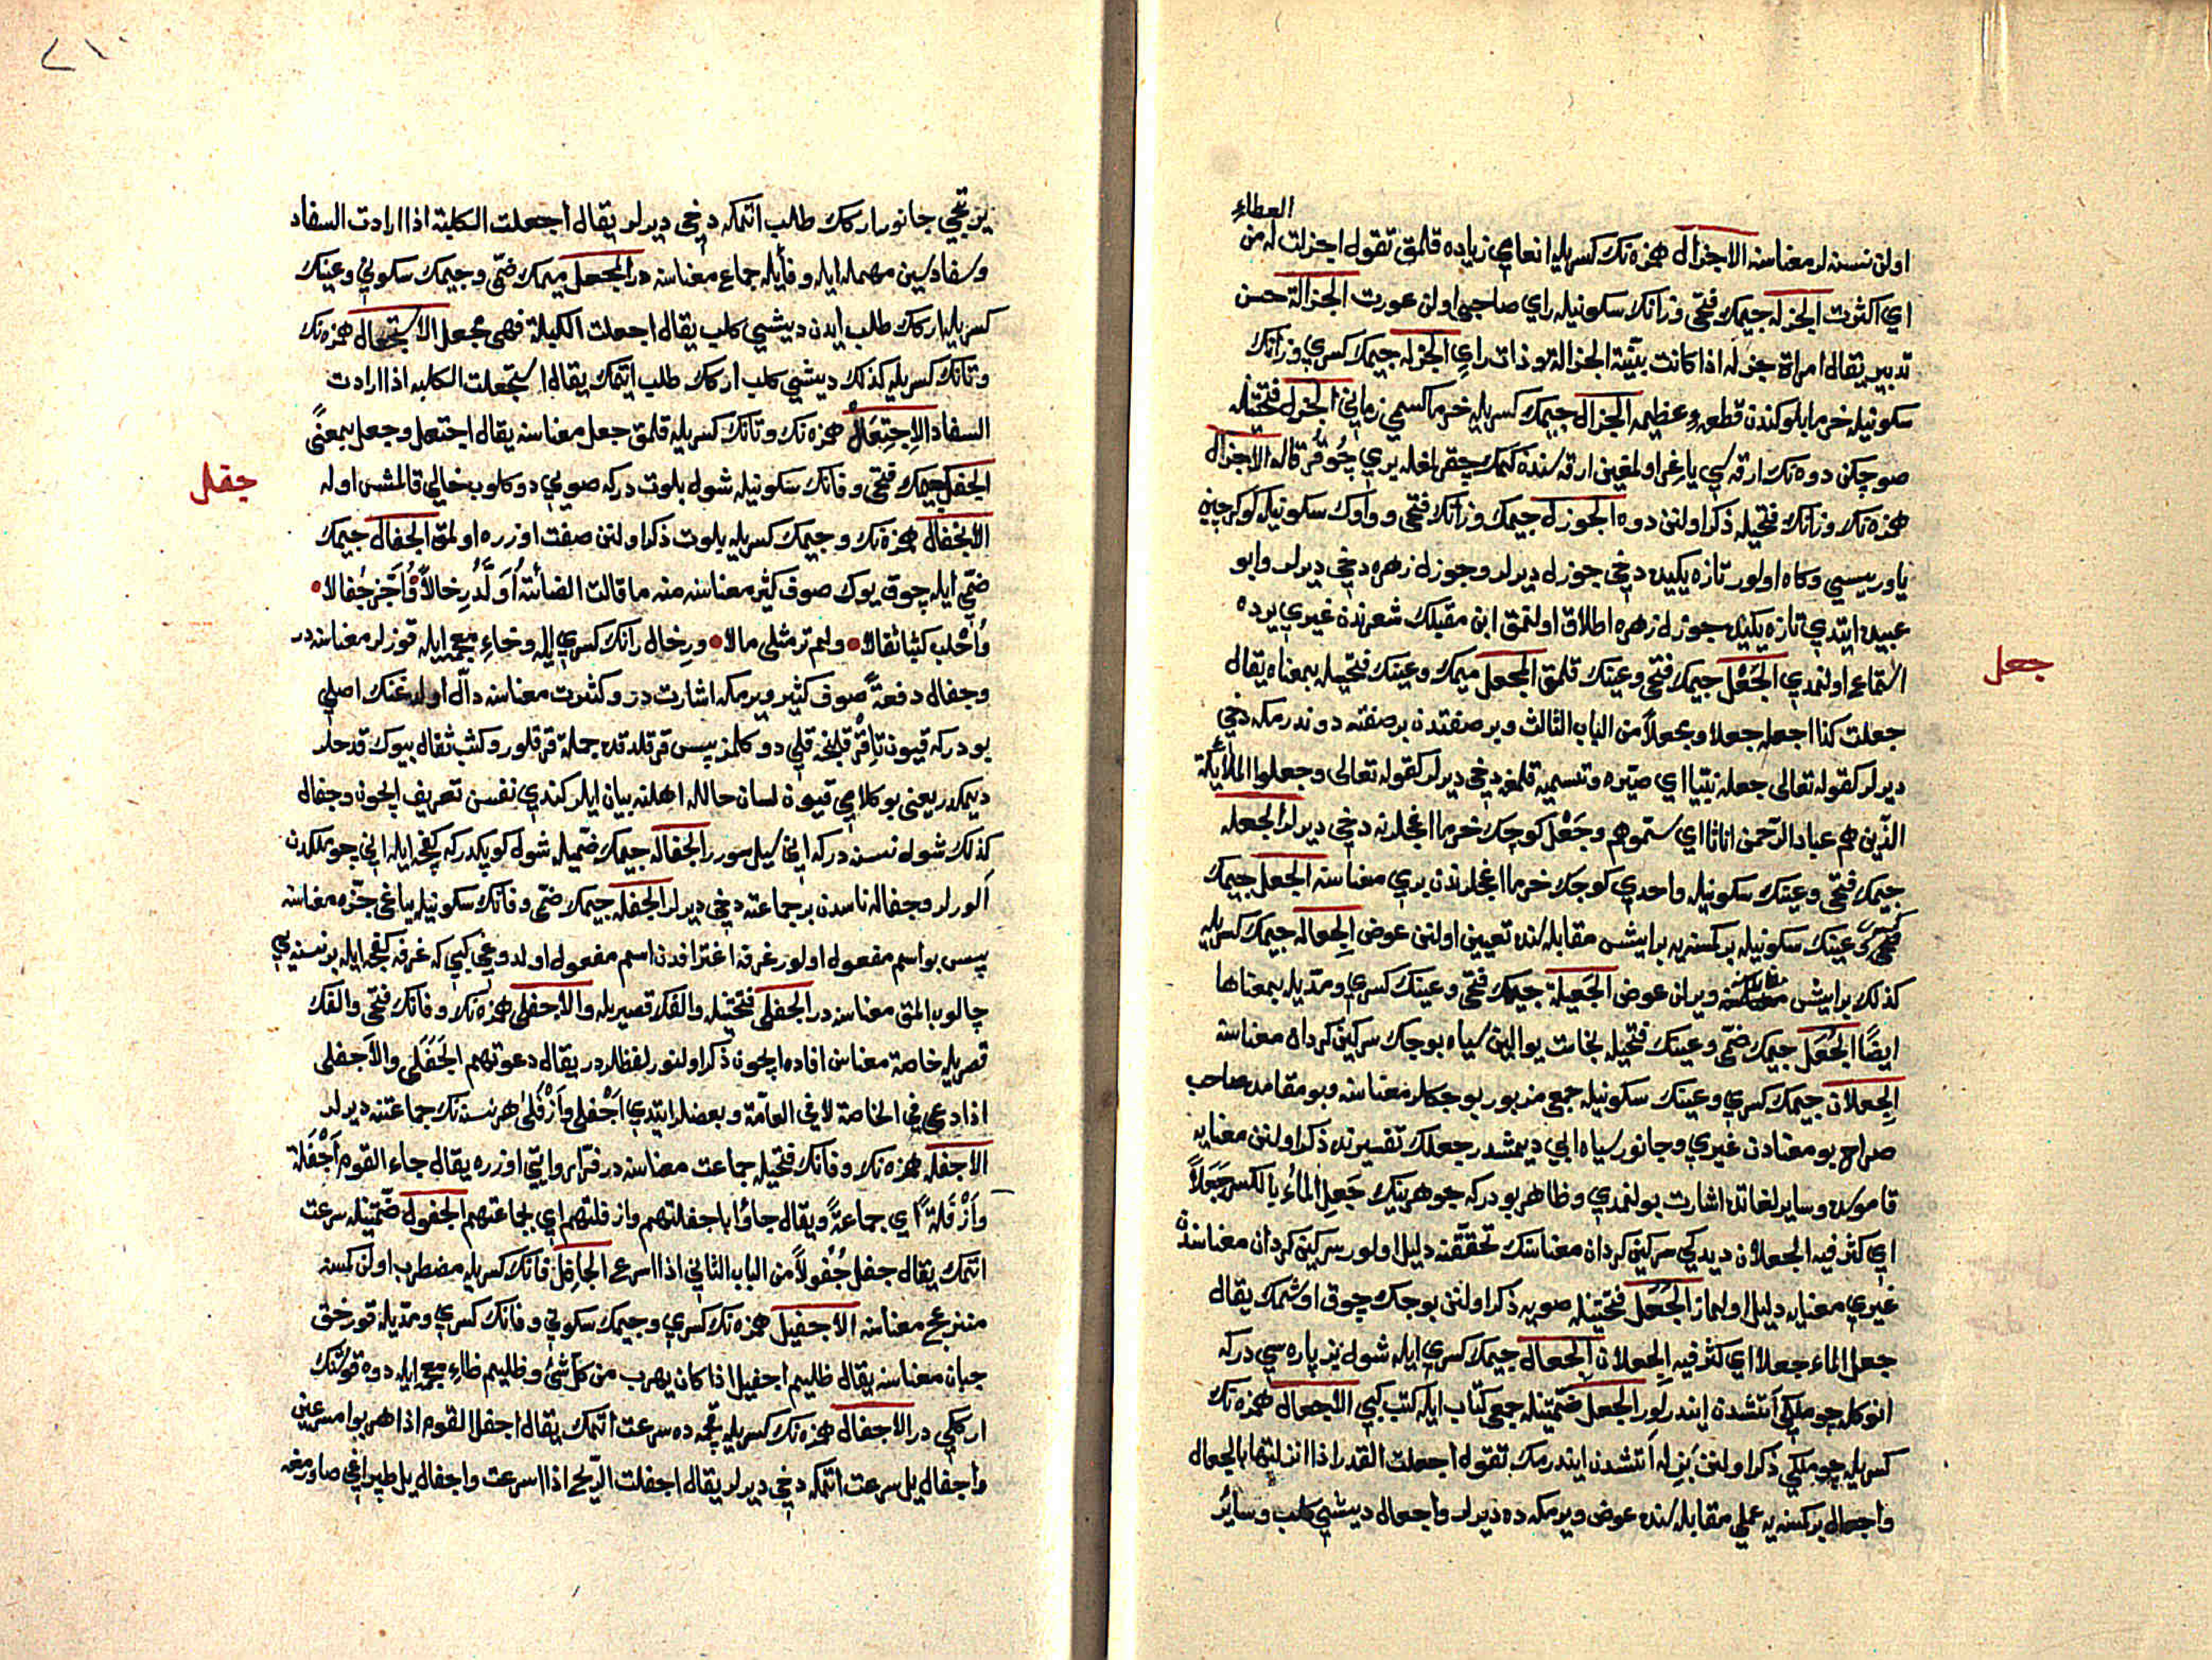 العطاء
اولن نسنه لر معناسنه الاجزال همزه نك كسريله انعامي زياده قلمق تقول اجزلت له من
اي اكثرت الجزله جيمك فتحى و زانك سكونيله راي صاحبى اولن عورت الجزالة حسن
تدبير يقال امراة جزله اذا كانت بيّنة الجزالة و ذات راي الجزله جيمك كسري و زانك
سكونيله خرما بلوكندن قطعهء عظيمه الجزال جيمك كسريله خرما كسمى زماني الجزل فتحتيله
صوچكن دوه نك ارقه سي ياغر اولمغين ارقه سنده كمك چقر اغله يري چوقر قاله الاجزال
همزه نك و زانك فتحيله ذكر اولنن دوه الجوزل جيمك و زانك فتحى و واوك سكونيله كوكرجين
ياوريسيي و كاه اولور تازه يكيده دخي جوزل ديرلر و جوزل زهره دخي ديرلر و ابو
عبيده ايتدي تازه يكيده جوزل زهره اطلاق اولنمق ابن مقبلك شعرندن غيري يرده
استماع اولنمدي الجَعْل جيمك فتحى و عينك قلمق المجعل ميمك و عينك فتحيله بمعناه يقال
جعلت كذا اجعله جعلا و مجعلاً من الباب الثالث و بر صفتدن بر صفته دوندرمكه دخي
ديرلر كقوله تعالى جعله نبيّا اي صيّره و تسميه قلمغه دخي ديرلر كقوله تعالى و جعلوا الملائكة
الّذين هم عباد الرّحمن اناثا اي سمّوهم و جَعْل كوچك خرما اغجلرنه دخي ديرلر الجعله
جيمك فتحى و عينك سكونيله واحدي كوچك خرما اغجلرندن بري معناسنه الجعل جيمك
ضمّى و عينك سكونيله بر كمسنه يه بر ايشى مقابله سنده تعيين اولنن عوض الجِعاله جيمك كسريله
كذلك بر ايش مقابله سنده ويرلن عوض الجَعيلة جيمك فتحى و عينك كسري و مدّيله بمعناها
ايضًا الجُعَل جيمك ضمّى و عينك فتحيله نجاست يوالين سياه بوجك سركين كردان معناسنه
الجِعلان جيمك كسري و عينك سكونيله جمعى مزبور بوجكلر معناسنه و بو مقامده صاحب
صراح بو معنادن غيري و جانور سياه ابي ديمشدر جعلك تفسيرنده ذكر اولنن معنايه
قاموسده و ساير لغاتده اشارت بولنمدي و ظاهر بودركه جوهرينك جَعِل الماءُ بالكسر جَعَلاً
اي كثر فيه الجعلان ديديكى سركين كردان معناسنك تحقّقنه دليل اولور سركين كردان معناسندن
غيري معنايه دليل اولماز الجَعَل فتحتيله صويه ذكر اولنن بوجك چوق اوشمك يقال
جعل الماء جعلا اي كثر فيه الجعلان الجعال جيمك كسري ايله شول بز پاره سي دركه
انوكله چوملكى آتشدن ايندرلور الجعل ضمّتيله جمعى كتاب ايله كتب كبي الاجعال همزه نك
كسريله چوملكى ذكر اولنن بزله آتشدن ايندرمك تقول اجعلت القدر اذا انزلتها بالجعال
و اجعال بر كسنه يه عملى مقابله سنده عوض ويرمكه ده ديرلر و اجعال ديشى كلب و ساير
جعل
٢١٠
يرتجي جانورلر اركك طلب اتمكه دخى ديرلر يقال اجعلت الكلبة اذا ارادت السفاد
و سفاد سين مهمله ايله و فا ايله جماع معناسنه در المجعل ميمك ضمّى و جيمك سكوني و عينك
كسريله اركك طلب ايدن ديشيى كلب يقال اجعلت الكلبة فهى مجعل الاستجعال همزه نك
و تانك كسريله كذلك ديشيى كلب اركك طلب اتمك يقال استجعلت الكلبه اذا ارادت
السفاد الاِجتِعَال همزه نك و تانك كسريله قلمق جعل معناسنه يقال اجتعل و جعل بمعنًى
الجفل جيمك فتحى و فانك سكونيله شول بلوت دركه صويي دوكلوب خالي قالمش اوله
الاجفال همزه نك و جيمك كسريله بلوت ذكر اولنن صفت اوزره اولمق الجفال جيمك
ضمّى ايله چوق يوك صوف كثير معناسنه منه ما قالت الضائنة اُوَلَّدُ رِخالاً و اُجَزُّ جُفالا
و اُحْلب كثبا ثقالا و لم تر مثلى مالا و رِخال رانك كسري ايله و خاءِ معجمه ايله قوزلر معناسنه در
و جفال دفعةً صوف كثير ويرمكه اشارت در و كثرت معناسنه دالّ اولدغنك اصلى
بودركه قيون تا قرقلنجه قلي دوكلمز پس قرقلدقده جملة قرقلور و كثب ثقال بيوك قدحلر
ديمكدر يعنى بو كلامى قيون لسان حالله اهلنه بيان ايلر كندي نفسن تعريف ايچون و جفال
كذلك شول نسنه دركه اني سيل سورر الجفاله جيمك ضمّيله شول كوپكدركه كفچه ايله اني چوملكدن
آلورلر و جفاله ناسدن بر جماعته دخى ديرلر الجفله جيمك ضمّى و فانك سكونيله يپاغى جزّه معناسنه
پس بو اسم مفعول اولور غرفه اغترافدن اسم مفعول اولدوغى كبي كه غرفه كفچه ايله بر نسنه يي
چالوب المق معناسنه در الجفلى فتحتيله و الفك قصريله و الاجفلى همزه نك و فانك فتحى و الفك
قصريله خاصة معناسن افاده ايچون ذكر اولنور لفظلردر يقال دعوتهم الجَفَلى و الاَجفلى
اذا دعي في الخاصة لا في العامّة و بعضلر ايتدي اَجْفلى و اَزْفَلى هر نسنه نك جماعتنه ديرلر
الاجفله همزه نك و فانك فتحيله جماعت معناسنه در فرّا روايتي اوزره يقال جاء القوم اَجْفَلة
و اَزْفَلةً اي جماعةً و يقال جاؤا باجفلتهم و ازفلتهم اي بجماعتهم الجفول ضمّتيله سرعت
اتمك يقال جفل جُفُولاً من الباب الثاني اذا اسرع الجافل فانك كسريله مضطرب اولن كسنه
منزعج معناسنه الاجفيل همزه نك كسري و جيمك سكوني و فانك كسري و مدّيله قورخق
جبان معناسنه يقال ظليم اجفيل اذا كان يهرب من كل شئ و ظليم ظاءِ معجمه ايله دوه قوشنك
اركيى در الاجفال همزه نك كسريله قچمه ده سرعت اتمك يقال اجفل القوم اذا هربوا مسرعين
و اجفال يل سرعت اتمكه دخي ديرلر يقال اجفلت الرّيح اذا اسرعت و اجفال يل طپراغى صاورمغه
جفل